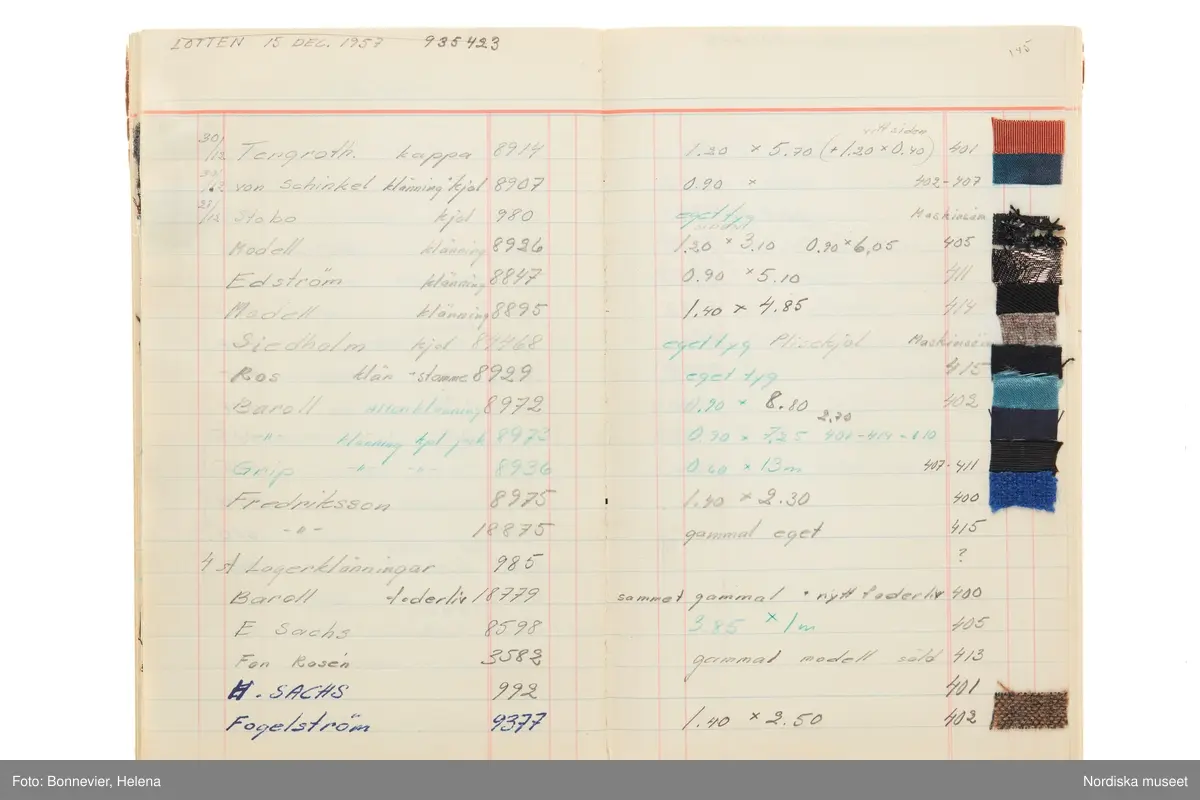 LOTTEN 15 DEC. 1957 935423
145
vitt siden
30/12 Tengroth. kappa 8914 1.20 × 5.70 (+1.20 × 0.40) 401
von Schinkel klänning kjol 8907 0.90 × 402-407
Stabo kjol 980 eget tyg Maskinsöm
Modell klänning 8926 1.20 × 3.10 0.90 × 6,05 405
Edström klänning 8847 0.90 × 5.10 411
Modell klänning 8895 1.40 × 4.85 414
Siedholm kjol eget tyg Plisékjol Maskinsöm
Ros klän -stomme 8929 eget tyg 415
Baroll aftonklänning 8972 0.90 × 8.80 402
2.70
-"- klänning kjol 8973 0.90 × 7,25
Grip -"- -"- 8936 × 13m 407-411
Fredriksson 8975 1.40 × 2.30 400
-"- 18875 gammal eget 415
4 st Lagerklänningar 985 ?
Baroll foderliv 18779 sammet gammal + nytt foderliv 400
E Sachs 8598 3.85 × 1m 405
Fon Rosén 3582 gammal modell såld 413
H. SACHS 992 401
Fogelström 9377 1.40 × 2.50 402
Foto: Bonnevier, Helena
Nordiska museet